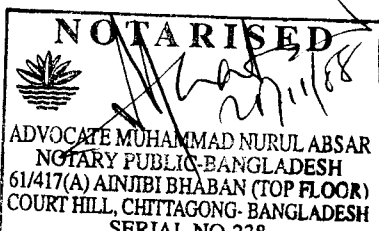 NOTARISED
ADVOCATE MUHAMMAD NURUL ABSAR
NOTARY PUBLIC-BANGLADESH
61/417(A) AINJIBI BHABAN (TOP FLOOR)
COURT HILL, CHITTAGONG- BANGLADESH
SERIAL NO 228